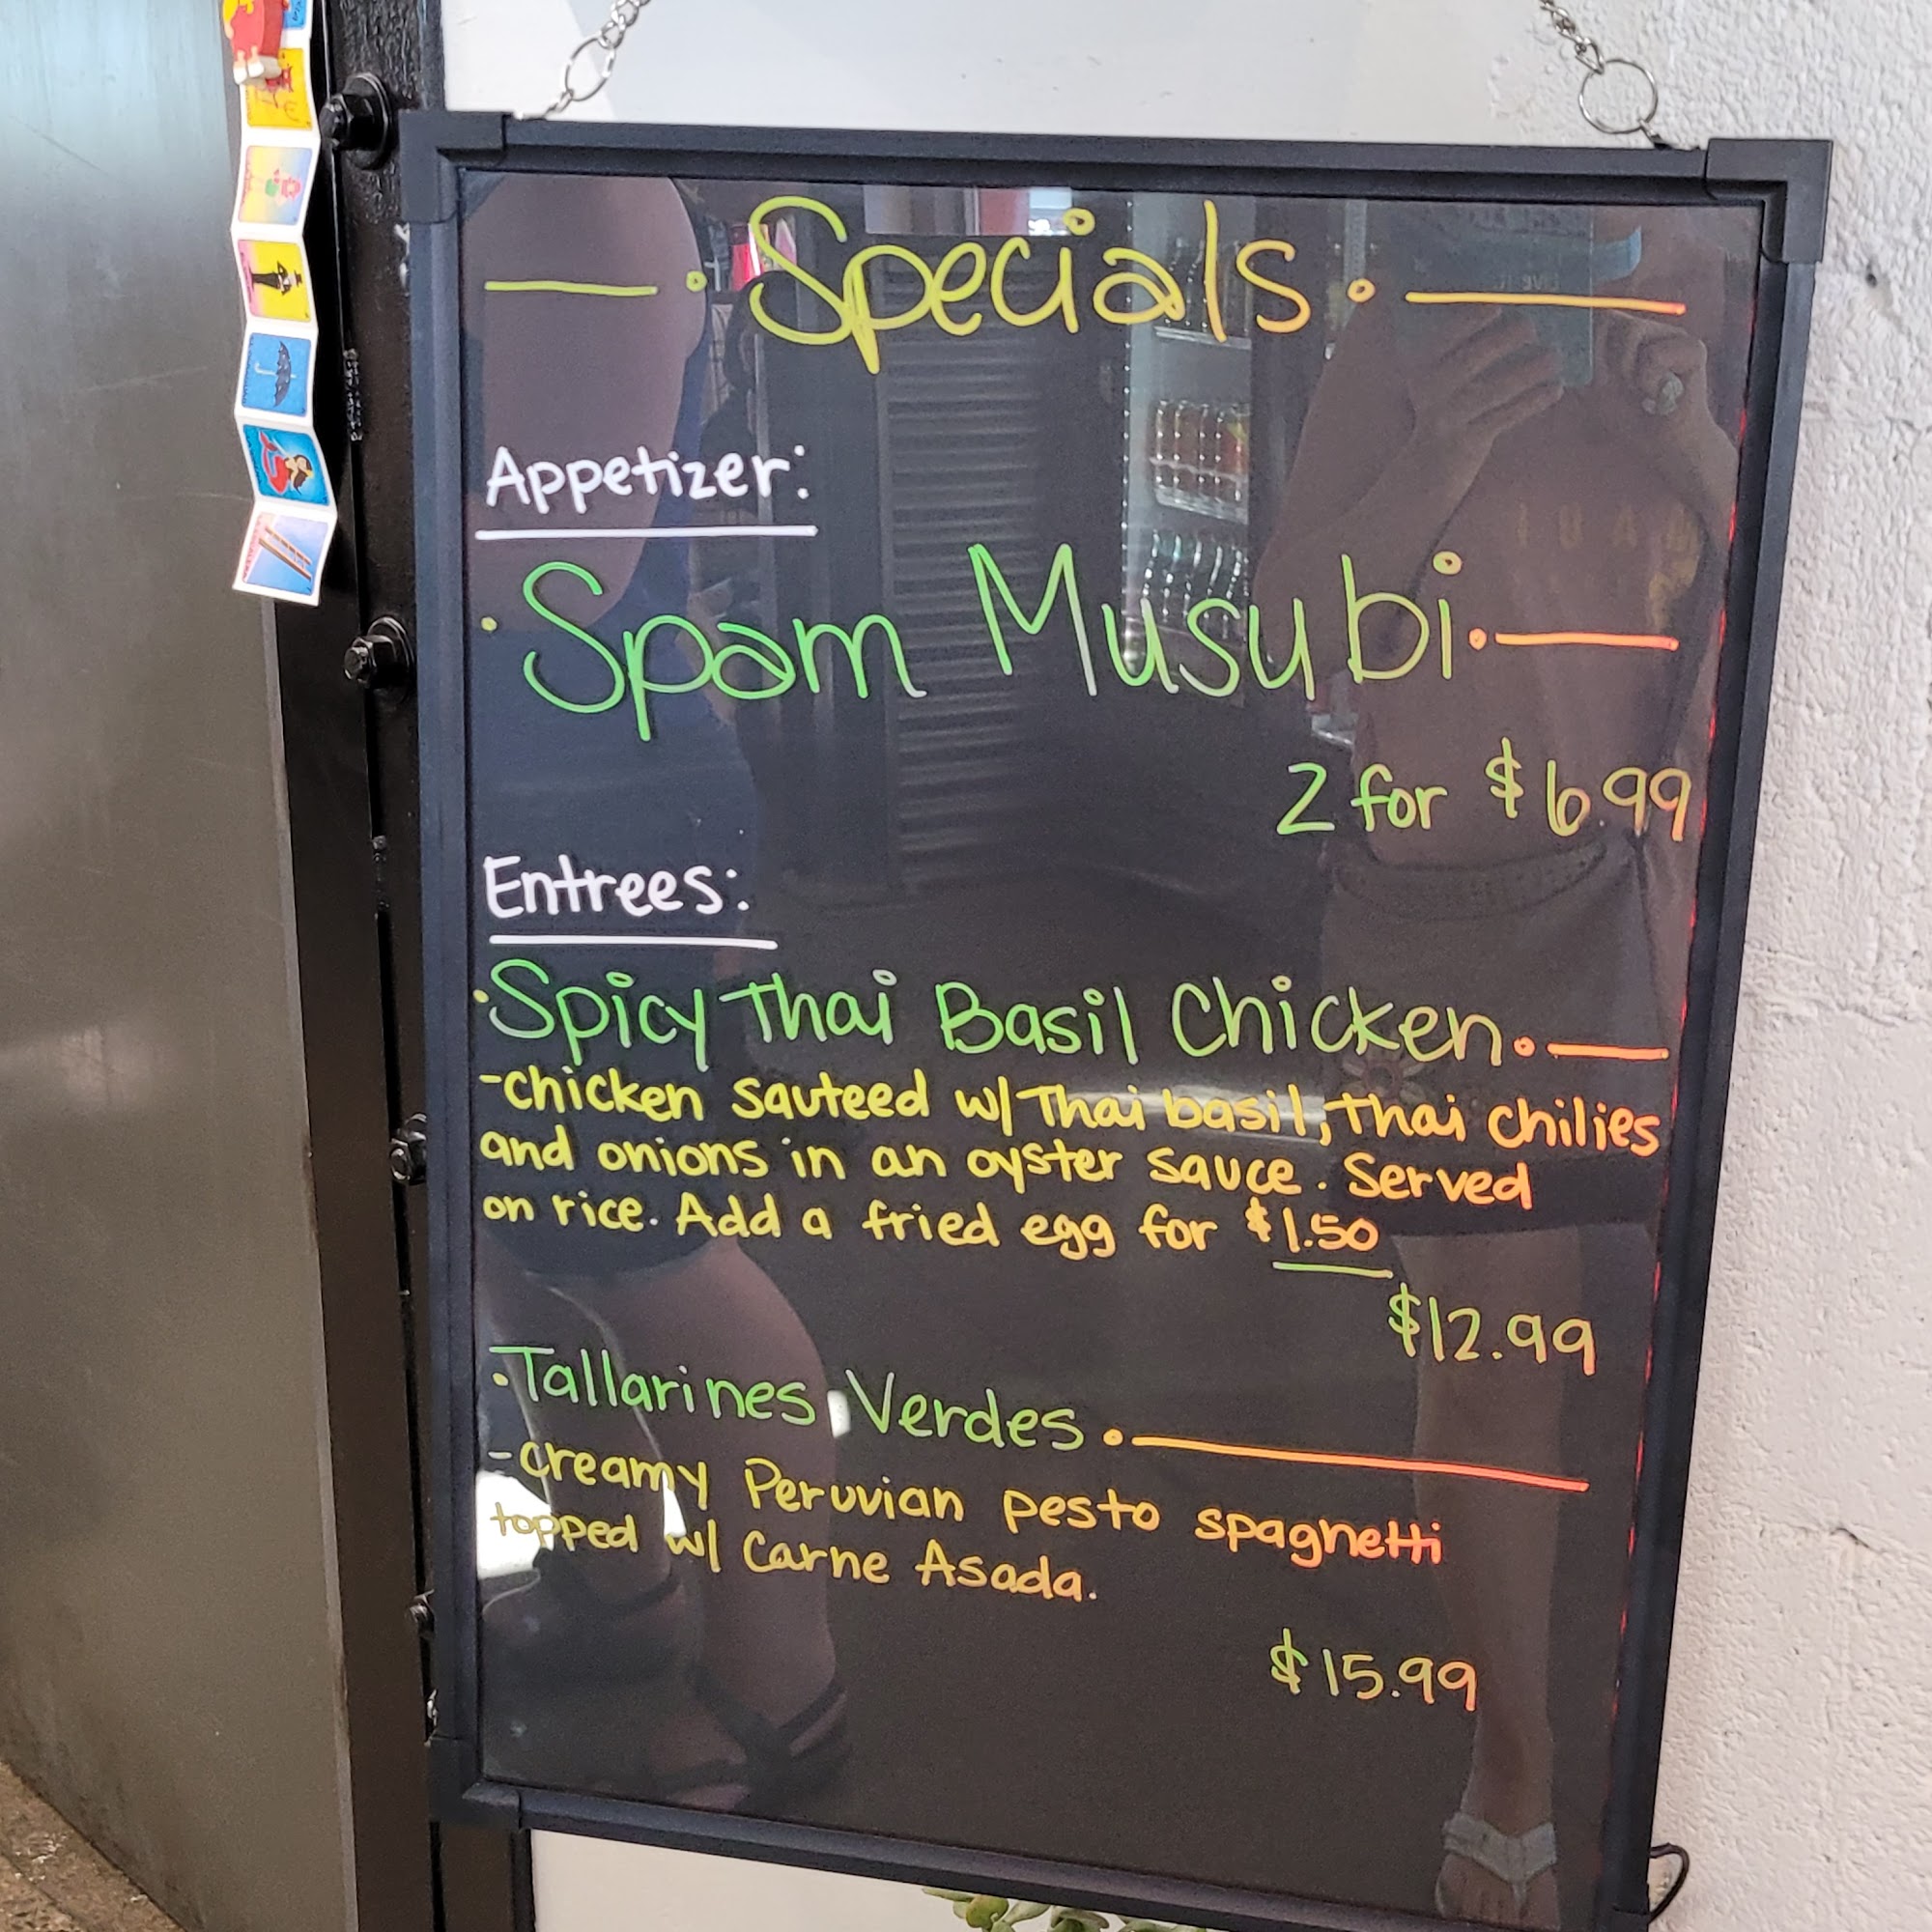 Specials
Appetizer:
Spam Musubi
2 for $6.99
Entrees:
Spicy Thai Basil Chicken
-chicken sauteed w/ Thai basil, thai chilies
and onions in an oyster sauce. Served
on rice. Add a fried egg for $1.50
$12.99
Tallarines Verdes
-creamy Peruvian pesto spaghetti
topped w/ Carne Asada.
$15.99